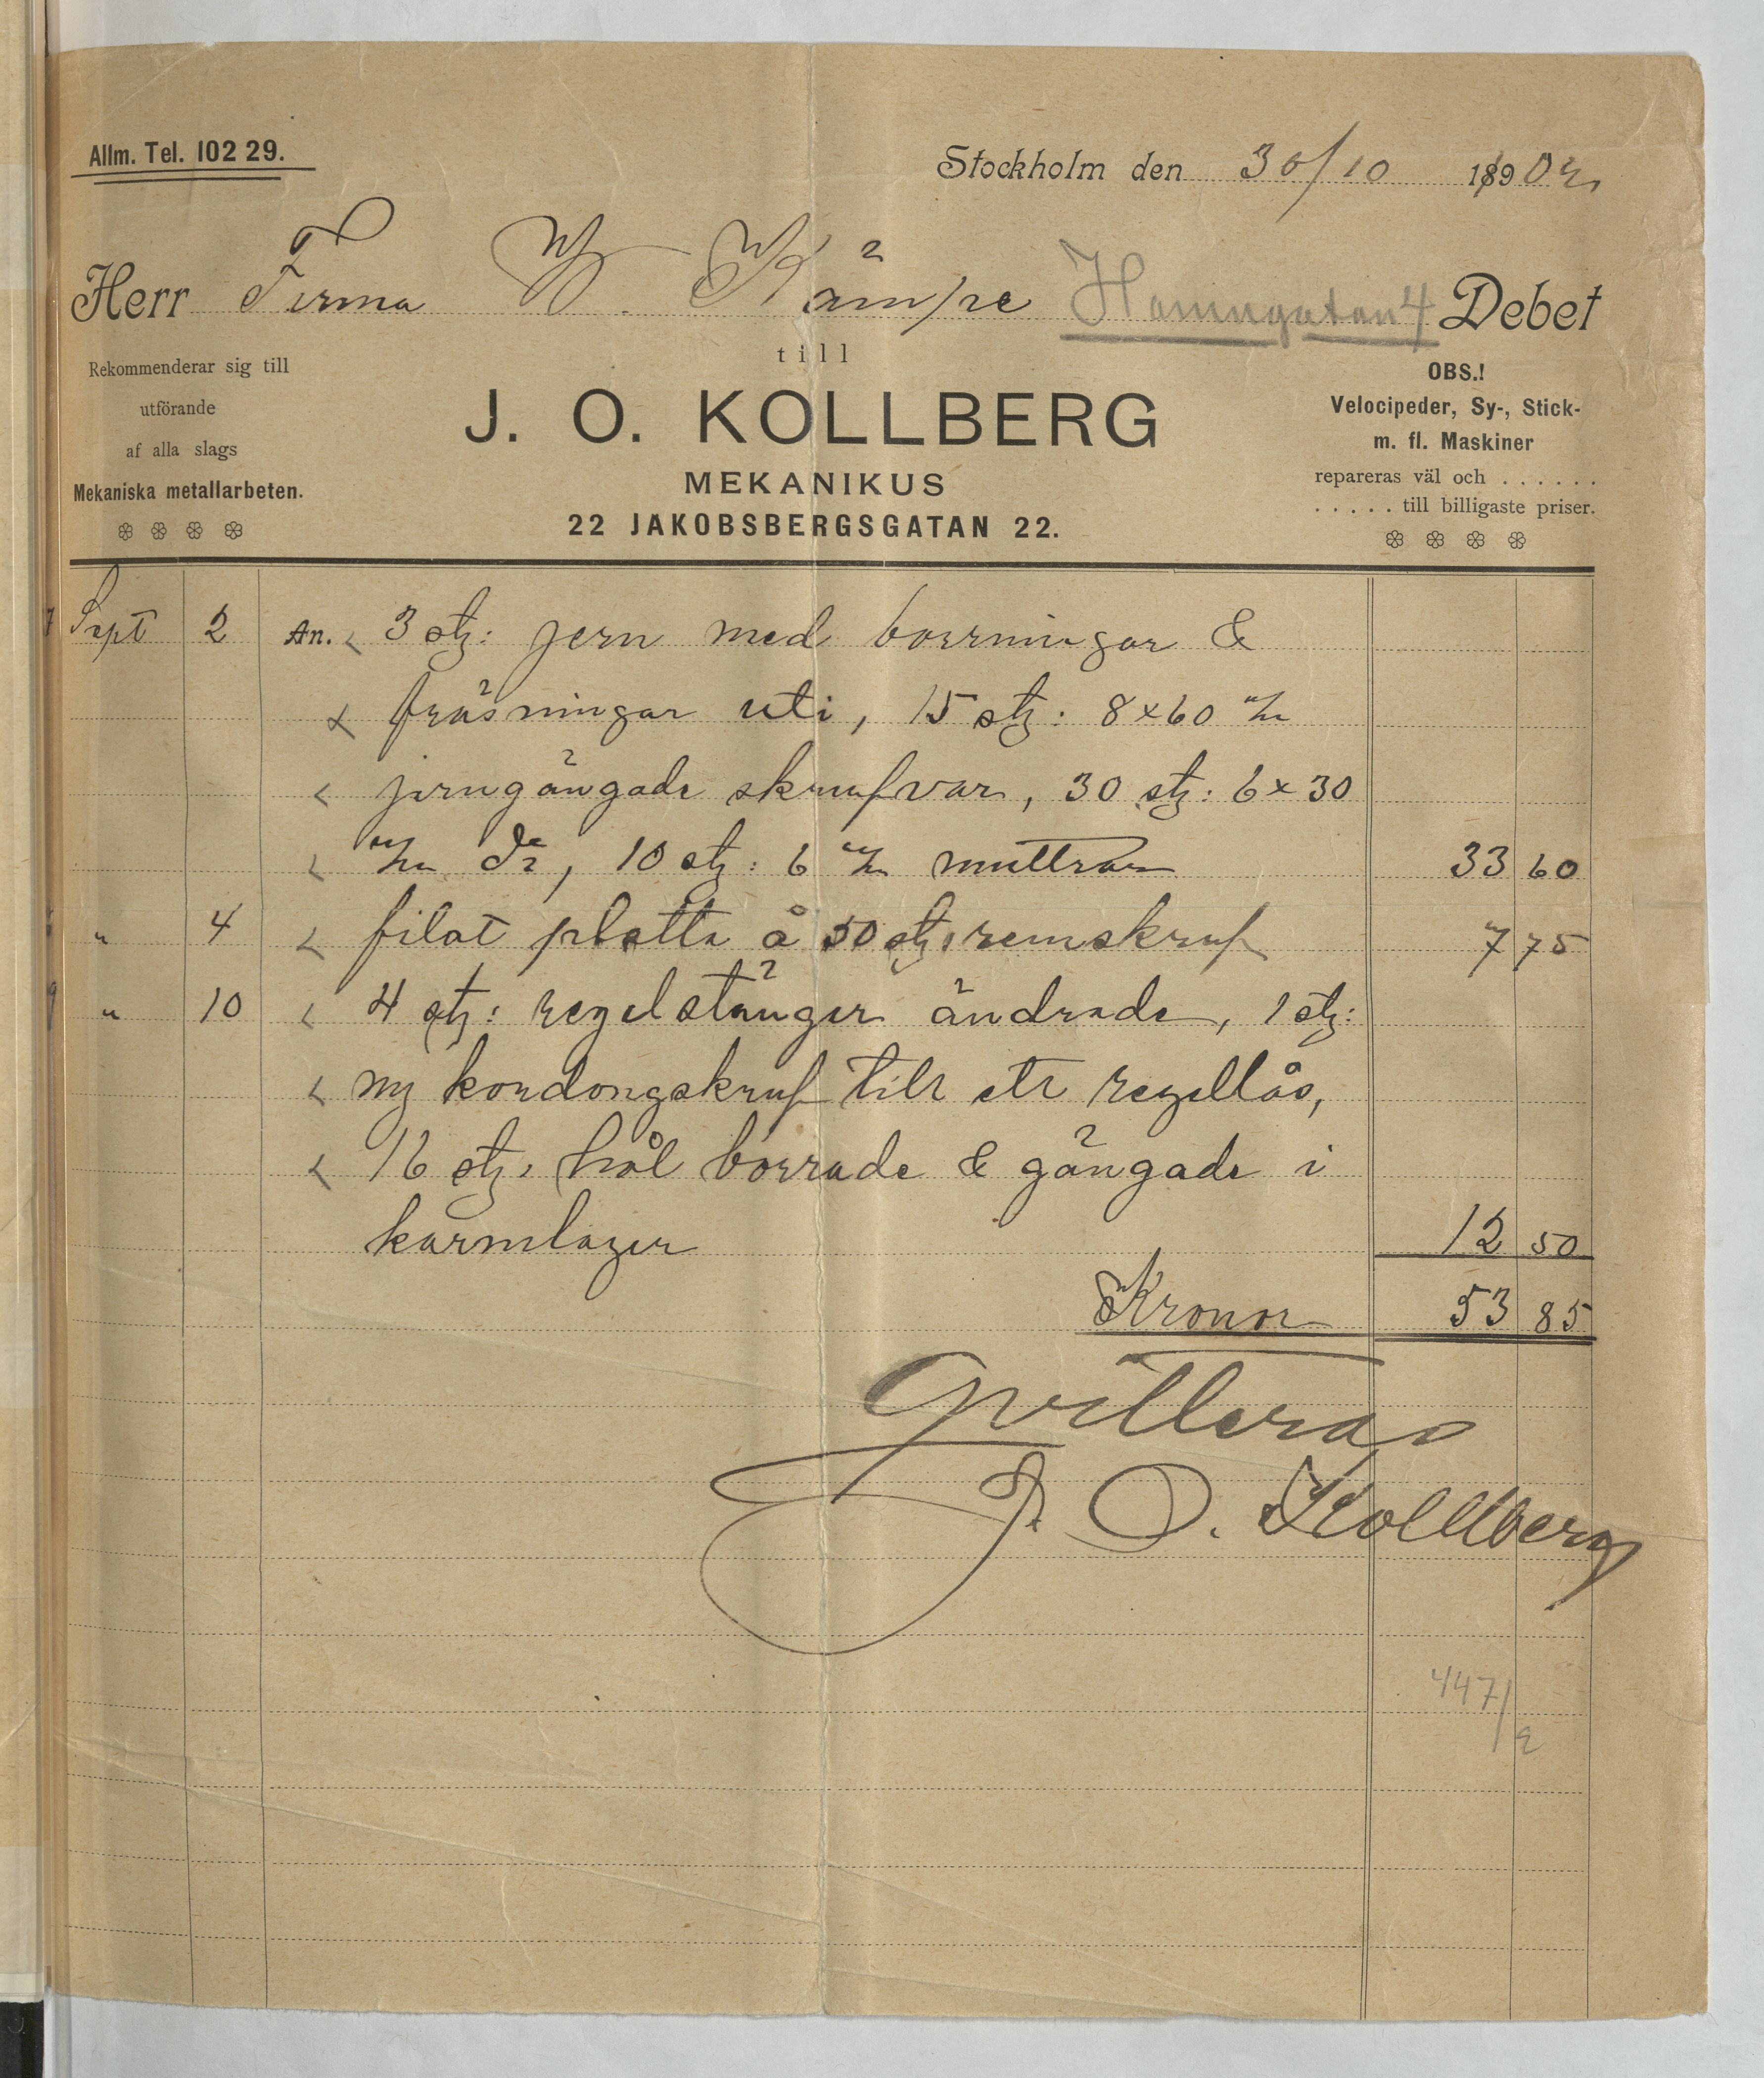 Allm. Tel. 102 29.
Stockholm den 30/10 1890 02
Herr Firma W. Kämpe Hamngatan 4 Debet
till
Rekommenderar sig till
utförande
af alla slags
Mekaniska metallarbeten.
J. O. KOLLBERG
MEKANIKUS
22 JAKOBSBERGSGATAN 22.
OBS.!
Velocipeder, Sy-, Stick-
m. fl. Maskiner
repareras väl och . . . . . .
. . . . . till billigaste priser.
Sept 2 An. 3 st: jern med borrningar &
fräsningar uti, 15 st: 8×60 m/m
jerngängade skrufvar, 30 st: 6×30
m/m do, 10 st: 6 m/m muttrar 33 60
" 4 filat platta å 50 st: remskruf 7 75
" 10 4 st: regelstänger ändrade, 1 st:
ny kordongskruf till ett regellås,
16 st: hål borrade & gängade i
karmlager 12 50
Kronor 53 85
Qvitteras
J. O. Kollberg
447/2